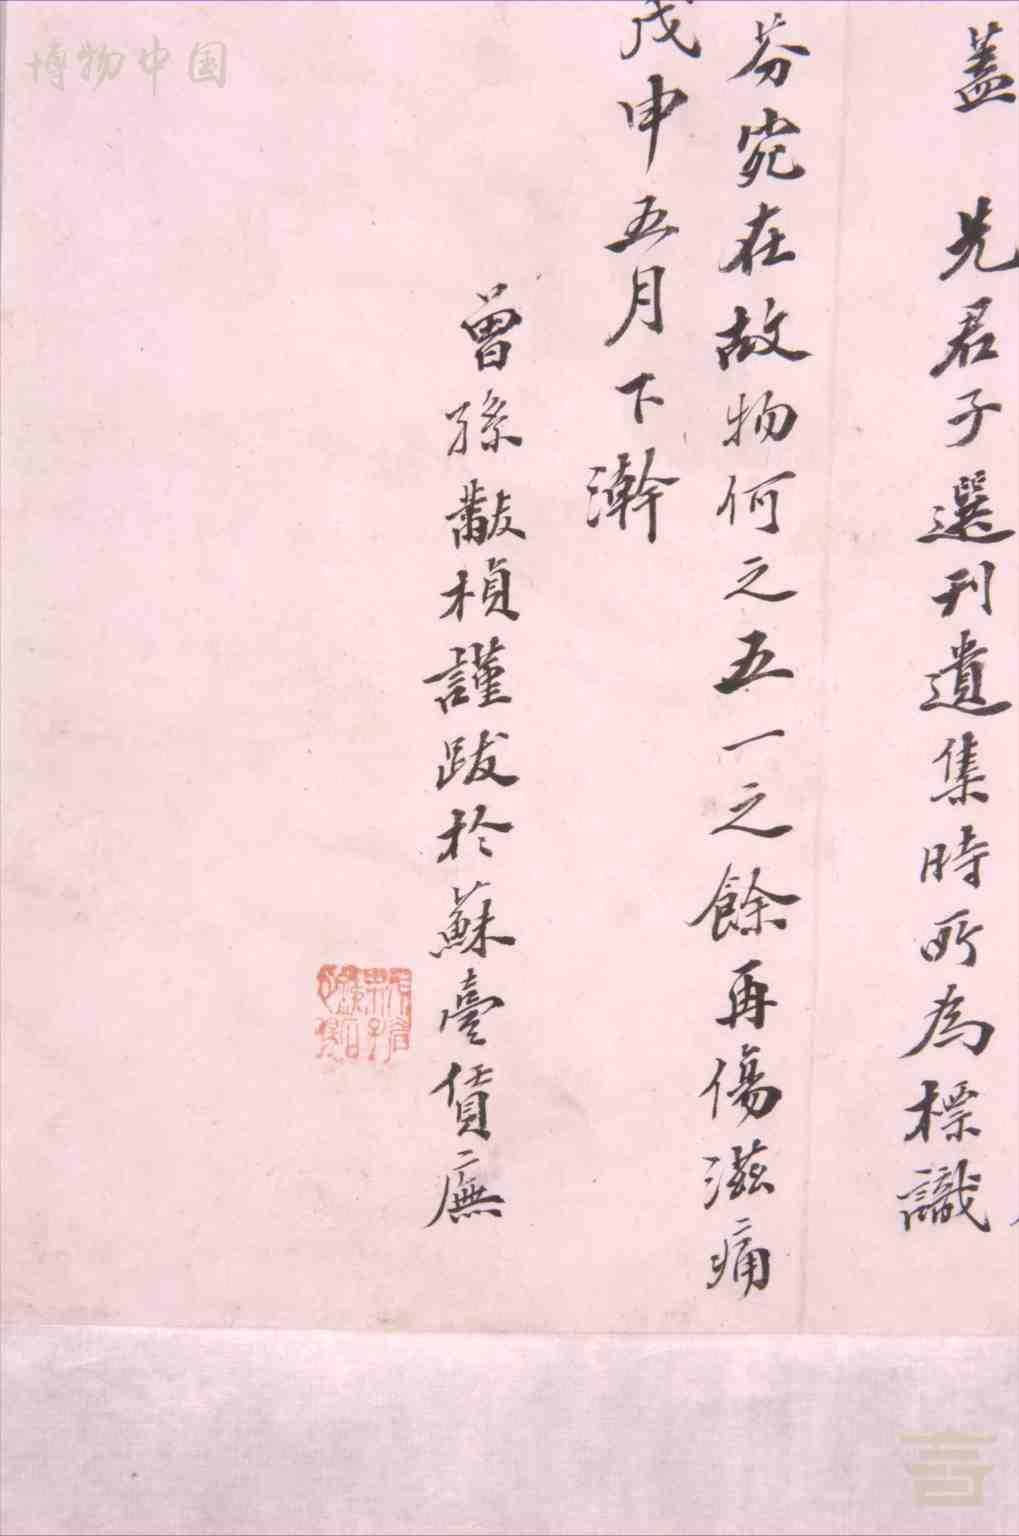 蓋 先君子選刊遺集時所為標識
芬宛在故物何之五一之餘再傷滋痛
戊申五月下澣
曾孫黻楨謹跋於蘇臺賃廡
博物中国